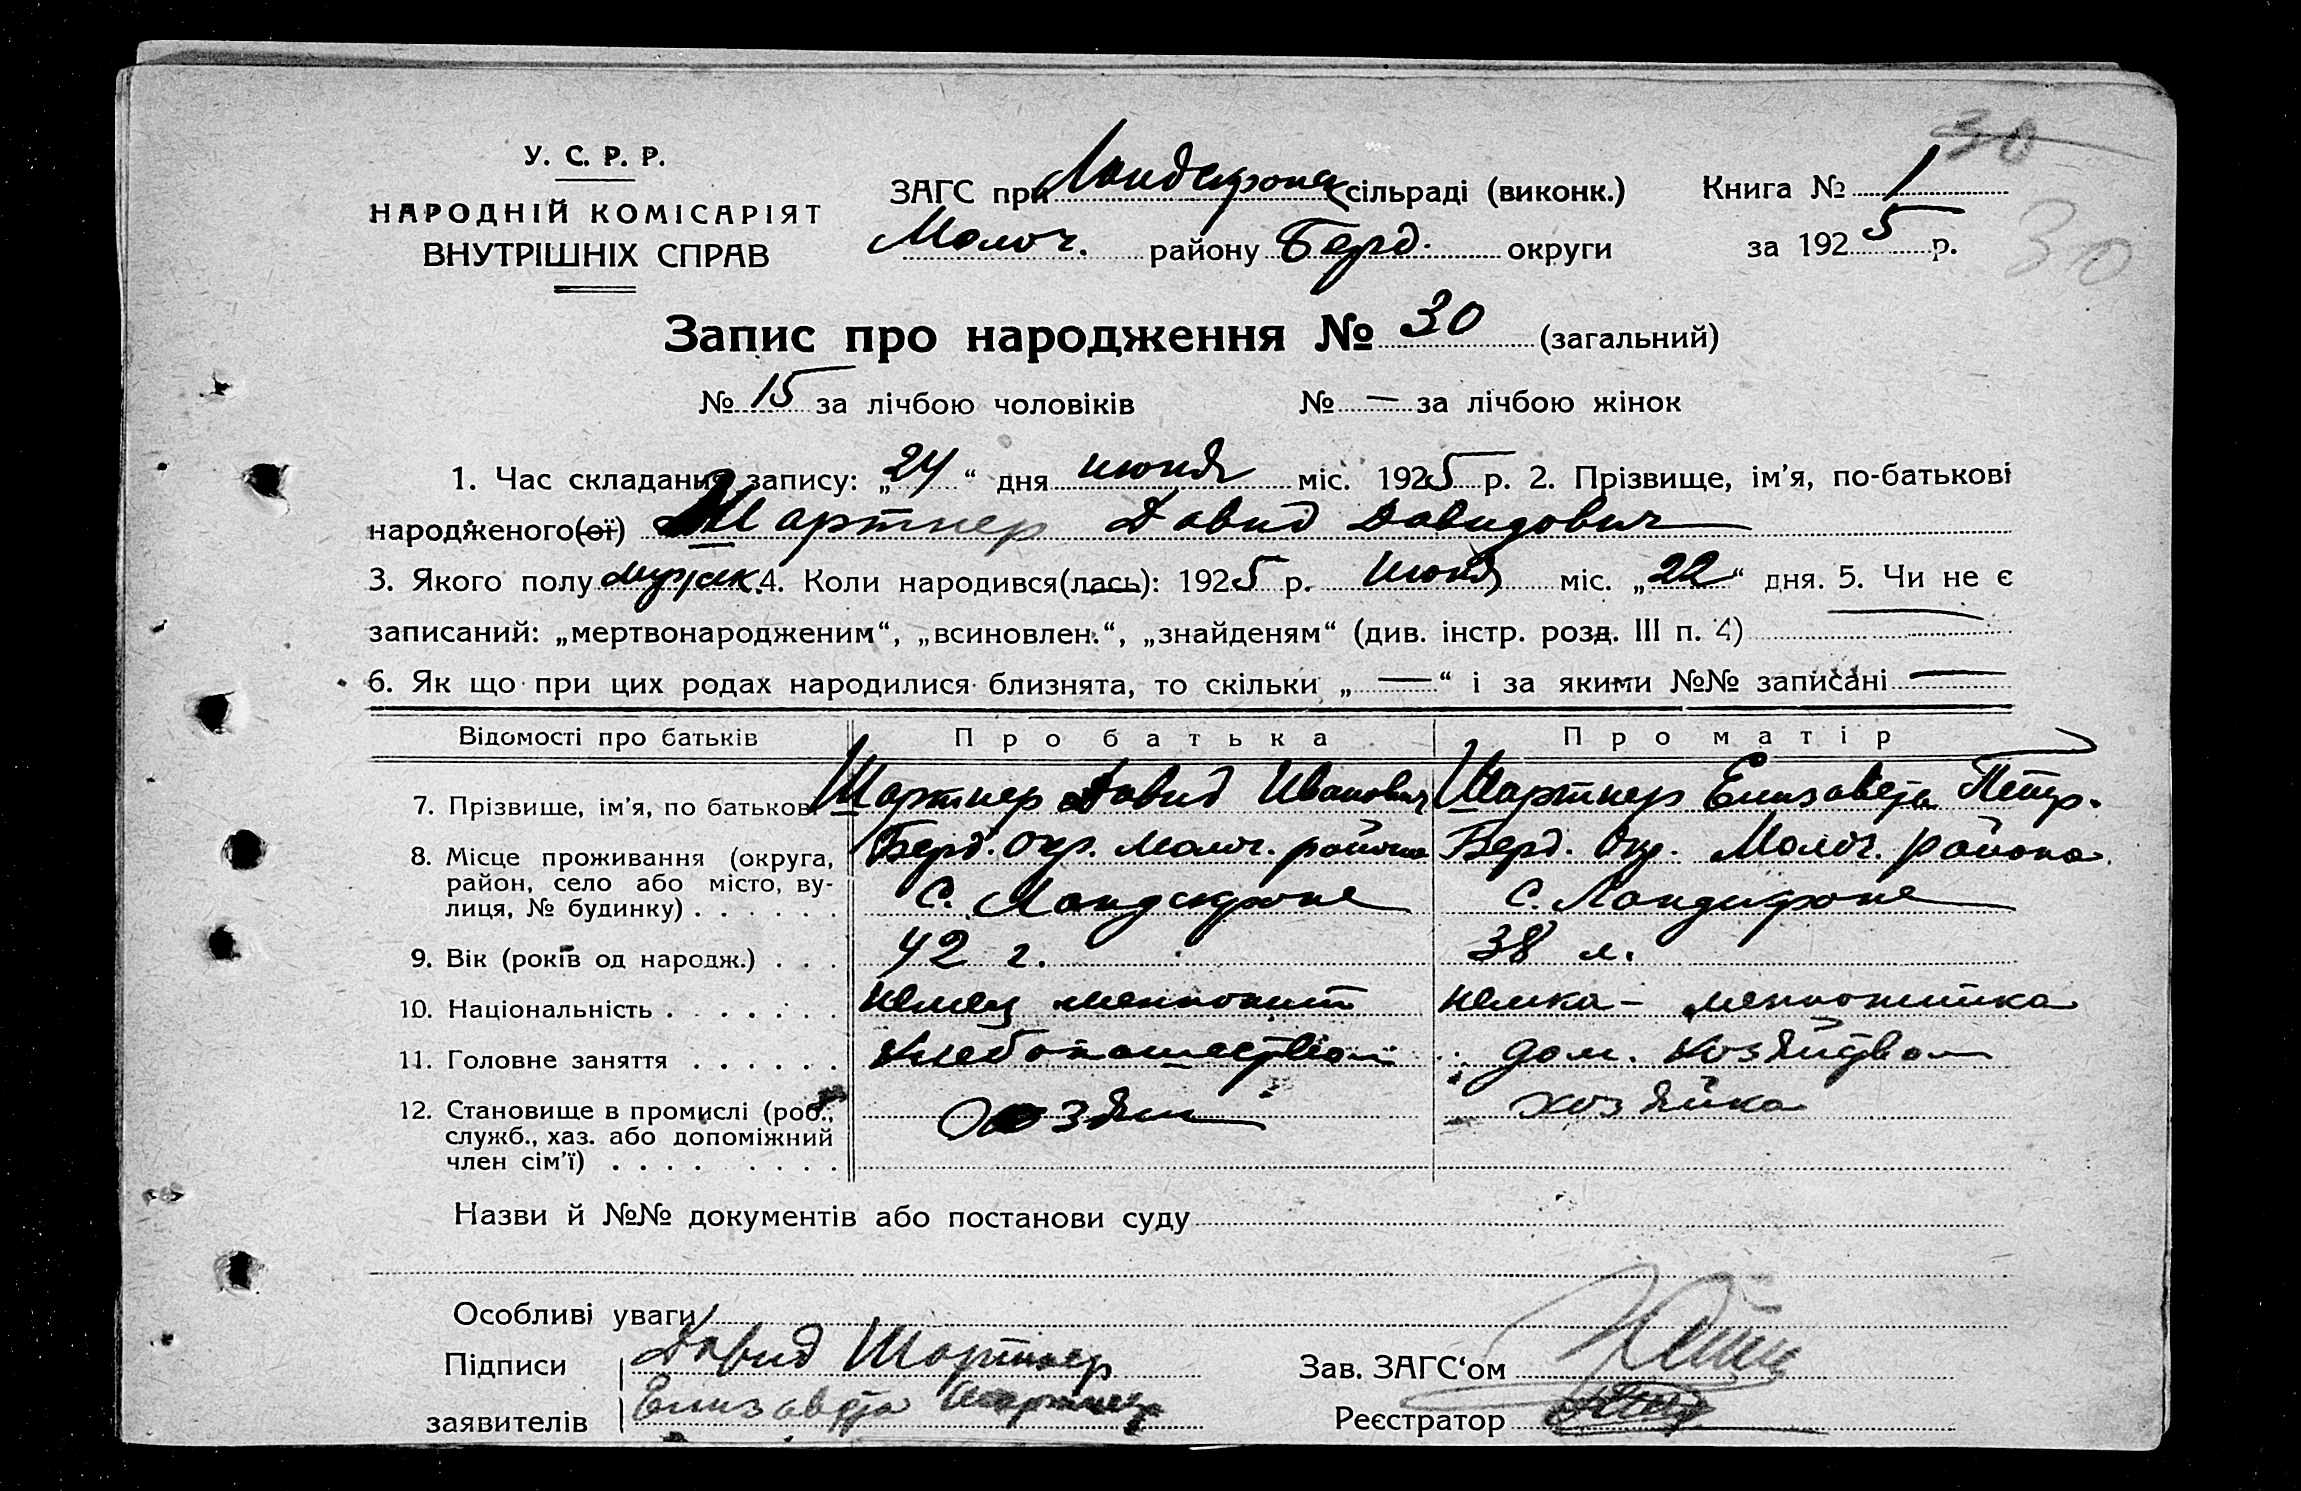 30
У. С. Р. Р.
НАРОДНІЙ КОМІСАРІЯТ
ВНУТРІШНІХ СПРАВ
ЗАГС при Ландскроне сільраді (виконк.)
Молоч. району Берд. округи
Книга № 1
за 1925 р.
30
Запис про народження № 30 (загальний)
№ 15 за лічбою чоловіків № — за лічбою жінок
1. Час складання запису: „24“ дня июня міс. 1925 р. 2. Прізвище, ім'я, по-батькові
народженого(ої) Шартнер Давид Давидович
3. Якого полу мужск. 4. Коли народився(лась): 1925 р. Июня міс. „22“ дня. 5. Чи не є
записаний: „мертвонародженим“, „всиновлен.“, „знайденям“ (див. інстр. розд. III п. 4) —
6. Як що при цих родах народилися близнята, то скільки „ — “ і за якими №№ записані —
Відомості про батьків Про батька Про матір
7. Прізвище, ім'я, по батькові Шартнер Давид Иванович Шартнер Елизавета Петр.
8. Місце проживання (округа, Берд. Окр. Молоч. района Берд. Окр. Молоч. района
район, село або місто, ву-
лиця, № будинку) . . . . . . С. Ландскроне С. Ландскроне
9. Вік (років од народж.) . . . 42 г. 38 л.
10. Національність . . . . . . . немец менонит немка – менонитка
11. Головне заняття . . . . . . хлебопашество дом. хозяйством
12. Становище в промислі (роб., хозяин хозяйка
служб., хаз. або допоміжний
член сім'ї) . . . . . . . .
Назви й №№ документів або постанови суду
Особливі уваги
Підписи Давид Шартнер
заявителів Елизавета Шартнер
Зав. ЗАГС'ом
Реєстратор